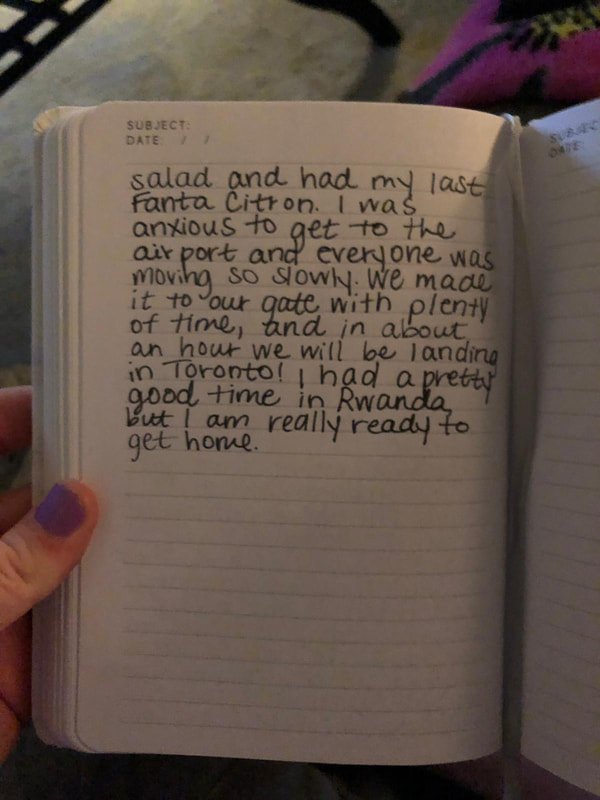 SUBJECT:
DATE: / /
salad and had my last
Fanta Citron. I was
anxious to get to the
airport and everyone was
moving so slowly. We made
it to our gate with plenty
of time, and in about
an hour we will be landing
in Toronto! I had a pretty
good time in Rwanda
but I am really ready to
get home.
SUBJECT
DATE: